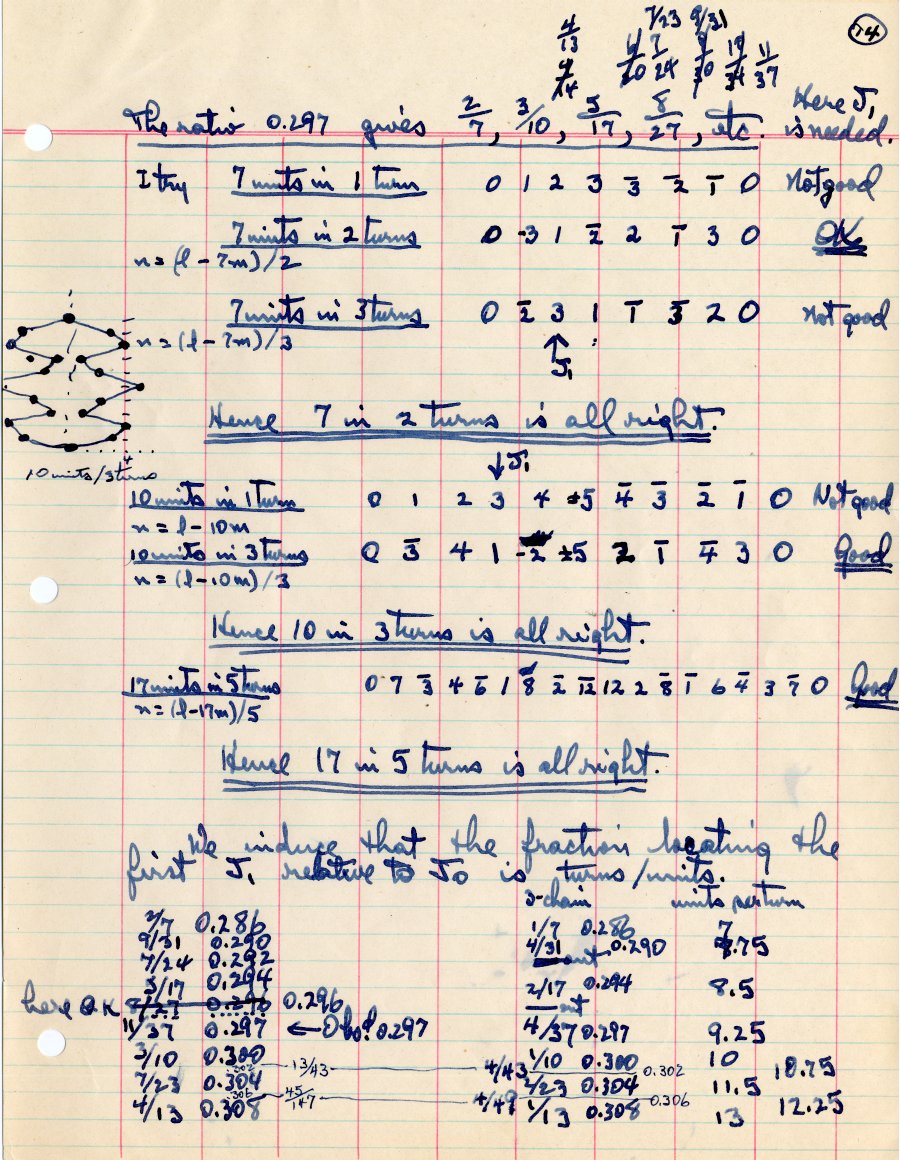 14
4/13 7/23 9/31
4/14 6/20 7/24 9/30 10/34 11/37
The ratio 0.297 gives 2/7, 3/10, 5/17, 8/27, etc. Here J₁ is needed.
I try 7 units in 1 turn 0 1 2 3 3̄ 2̄ 1̄ 0 Not good
7 units in 2 turns 0 -3 1 2̄ 2 1̄ 3 0 OK
n = (l - 7m)/2
7 units in 3 turns 0 2̄ 3 1 1̄ 3̄ 2 0 Not good
n = (l - 7m)/3
↑
J₁
Hence 7 in 2 turns is all right.
10 units/3 turns
↓J₁
10 units in 1 turn 0 1 2 3 4 ±5 4̄ 3̄ 2̄ 1̄ 0 Not good
n = l - 10m
10 units in 3 turns 0 3̄ 4 1 -2 ±5 2 1̄ 4̄ 3 0 Good
n = (l - 10m)/3
Hence 10 in 3 turns is all right.
17 units in 5 turns 0 7 3̄ 4 6̄ 1 8̄ 2̄ 12̄ 12 2 8̄ 1̄ 6 4̄ 3 7̄ 0 Good
n = (l - 17m)/5
Hence 17 in 5 turns is all right.
We induce that the fraction locating the
first J₁ relative to J₀ is turns/units.
3-chain units per turn
2/7 0.286 1/7 0.286 7
9/31 0.290 4/31 out 0.290 7.75
7/24 0.292
5/17 0.294 2/17 0.294 8.5
here OK 8/27 0.296 out
11/37 0.297 ← Obsd 0.297 4/37 0.297 9.25
3/10 0.300 1/10 0.300 10
.302 13/43 4/43 0.302 10.75
7/23 0.304 2/23 0.304 11.5
.306 45/147 4/49 0.306 12.25
4/13 0.308 1/13 0.308 13